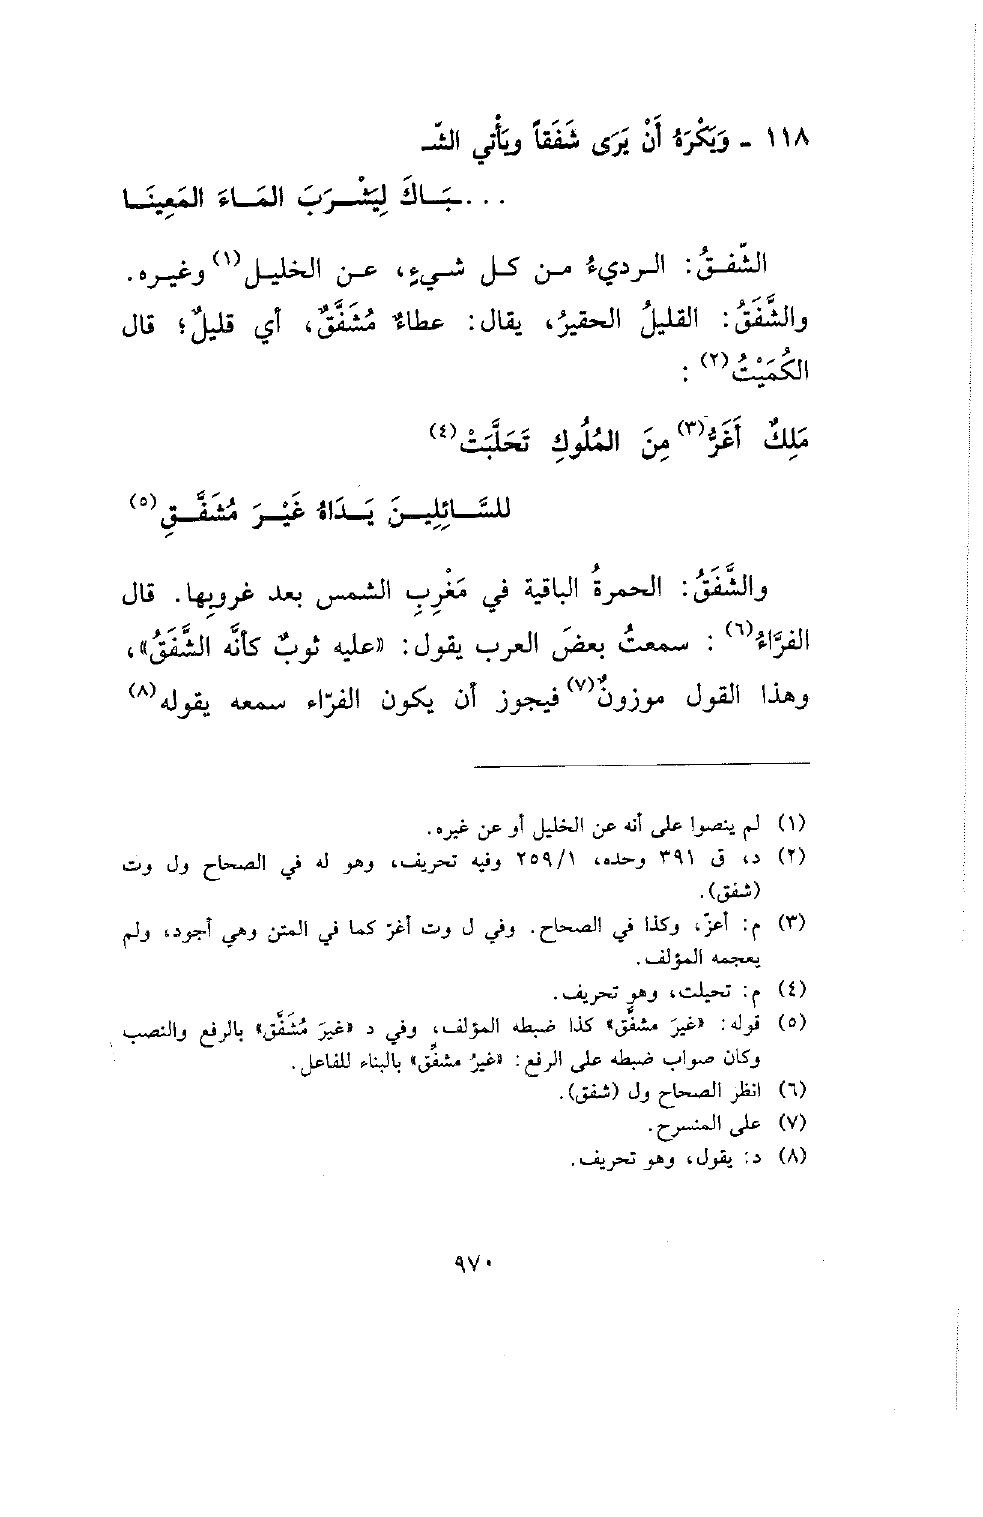 ١١٨ - وَيَكْرَهُ أَنْ يَرَى شَفَقاً ويَأْتي الشّـ
...ـبَـاكَ لِيَشْـرَبَ المَـاءَ المَعِينَـا
الشّفـقُ: الـرديءُ مـن كـل شـيءٍ، عـن الخليـل(١) وغيـره.
والشَّفَقُ: القليلُ الحقيرُ، يقال: عطاءٌ مُشَفَّقٌ، أي قليلٌ؛ قال
الكُمَيْتُ(٢) :
مَلِكٌ أَغَرُّ(٣) مِنَ المُلُوكِ تَحَلَّبَتْ(٤)
للسَّـائِلِيـنَ يَـدَاهُ غَيْـرَ مُشَفَّـقِ(٥)
والشَّفَقُ: الحمرةُ الباقية في مَغْرِبِ الشمس بعد غروبِها. قال
الفرّاءُ(٦) : سمعتُ بعضَ العرب يقول: «عليه ثوبٌ كأنَّه الشَّفَقُ»،
وهذا القول موزونٌ(٧) فيجوز أن يكون الفرّاء سمعه يقوله(٨)
(١) لم ينصوا على أنه عن الخليل أو عن غيره.
(٢) د، ق ٣٩١ وحده، ٢٥٩/١ وفيه تحريف، وهو له في الصحاح ول وت
(شفق).
(٣) م: أعزّ، وكذا في الصحاح. وفي ل وت أغرّ كما في المتن وهي أجود، ولم
يعجمه المؤلف.
(٤) م: تحيلت، وهو تحريف.
(٥) قوله: «غيرَ مشفَّق» كذا ضبطه المؤلف، وفي د «غيرَ مُشَفَّق» بالرفع والنصب
وكان صواب ضبطه على الرفع: «غيرُ مشفِّق» بالبناء للفاعل.
(٦) انظر الصحاح ول (شفق).
(٧) على المنسرح.
(٨) د: يقول، وهو تحريف.
٩٧٠